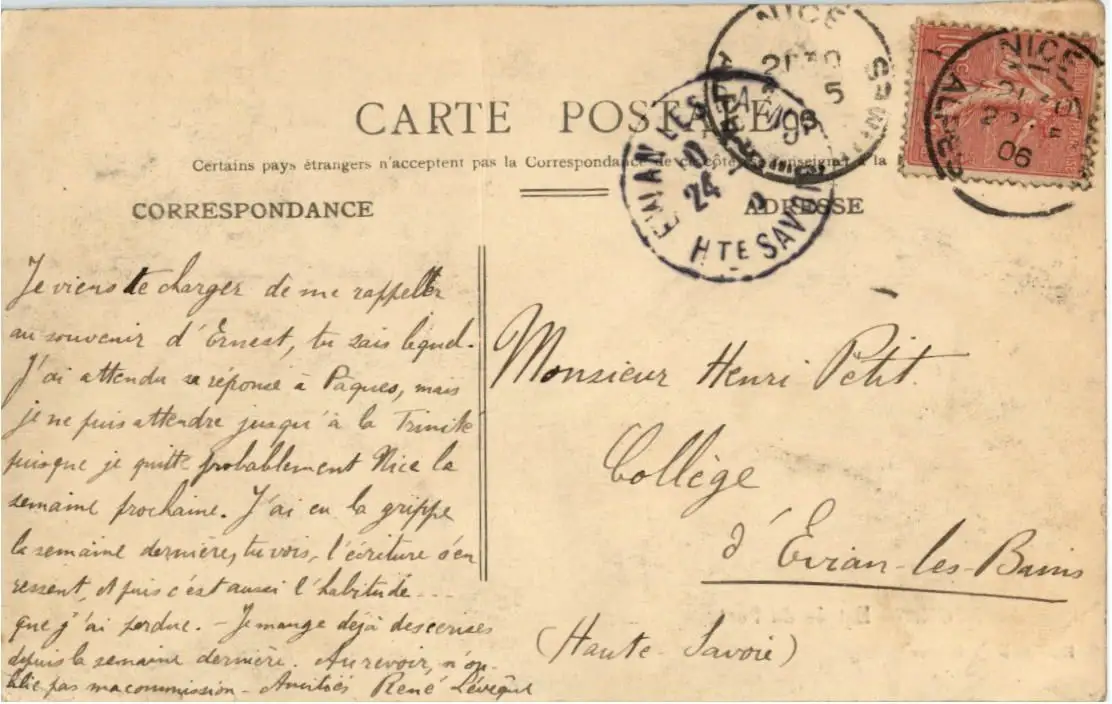 CARTE POSTALE
Certains pays étrangers n'acceptent pas la Correspondance de ce côté, se renseigner à la
CORRESPONDANCE
ADRESSE
NICE
ALPES
06
NICE
ALPES
EVIAN LES BAINS
24
HTE SAVOIE
10c
Je viens te charger de me rappeller
au souvenir d'Ernest, tu sais lequel.
J'ai attendu sa réponse à Pâques, mais
je ne puis attendre jusqu'à la Trinité
puisque je quitte probablement Nice la
semaine prochaine. J'ai eu la grippe
la semaine dernière, tu vois, l'écriture s'en
ressent, et puis c'est aussi l'habitude....
que j'ai perdue. - Je mange déjà des cerises
depuis la semaine dernière. Au revoir, n'ou-
blie pas ma commission - Amitiés René Lévêque
Monsieur Henri Petit.
Collège
d'Évian-les-Bains
(Haute Savoie)